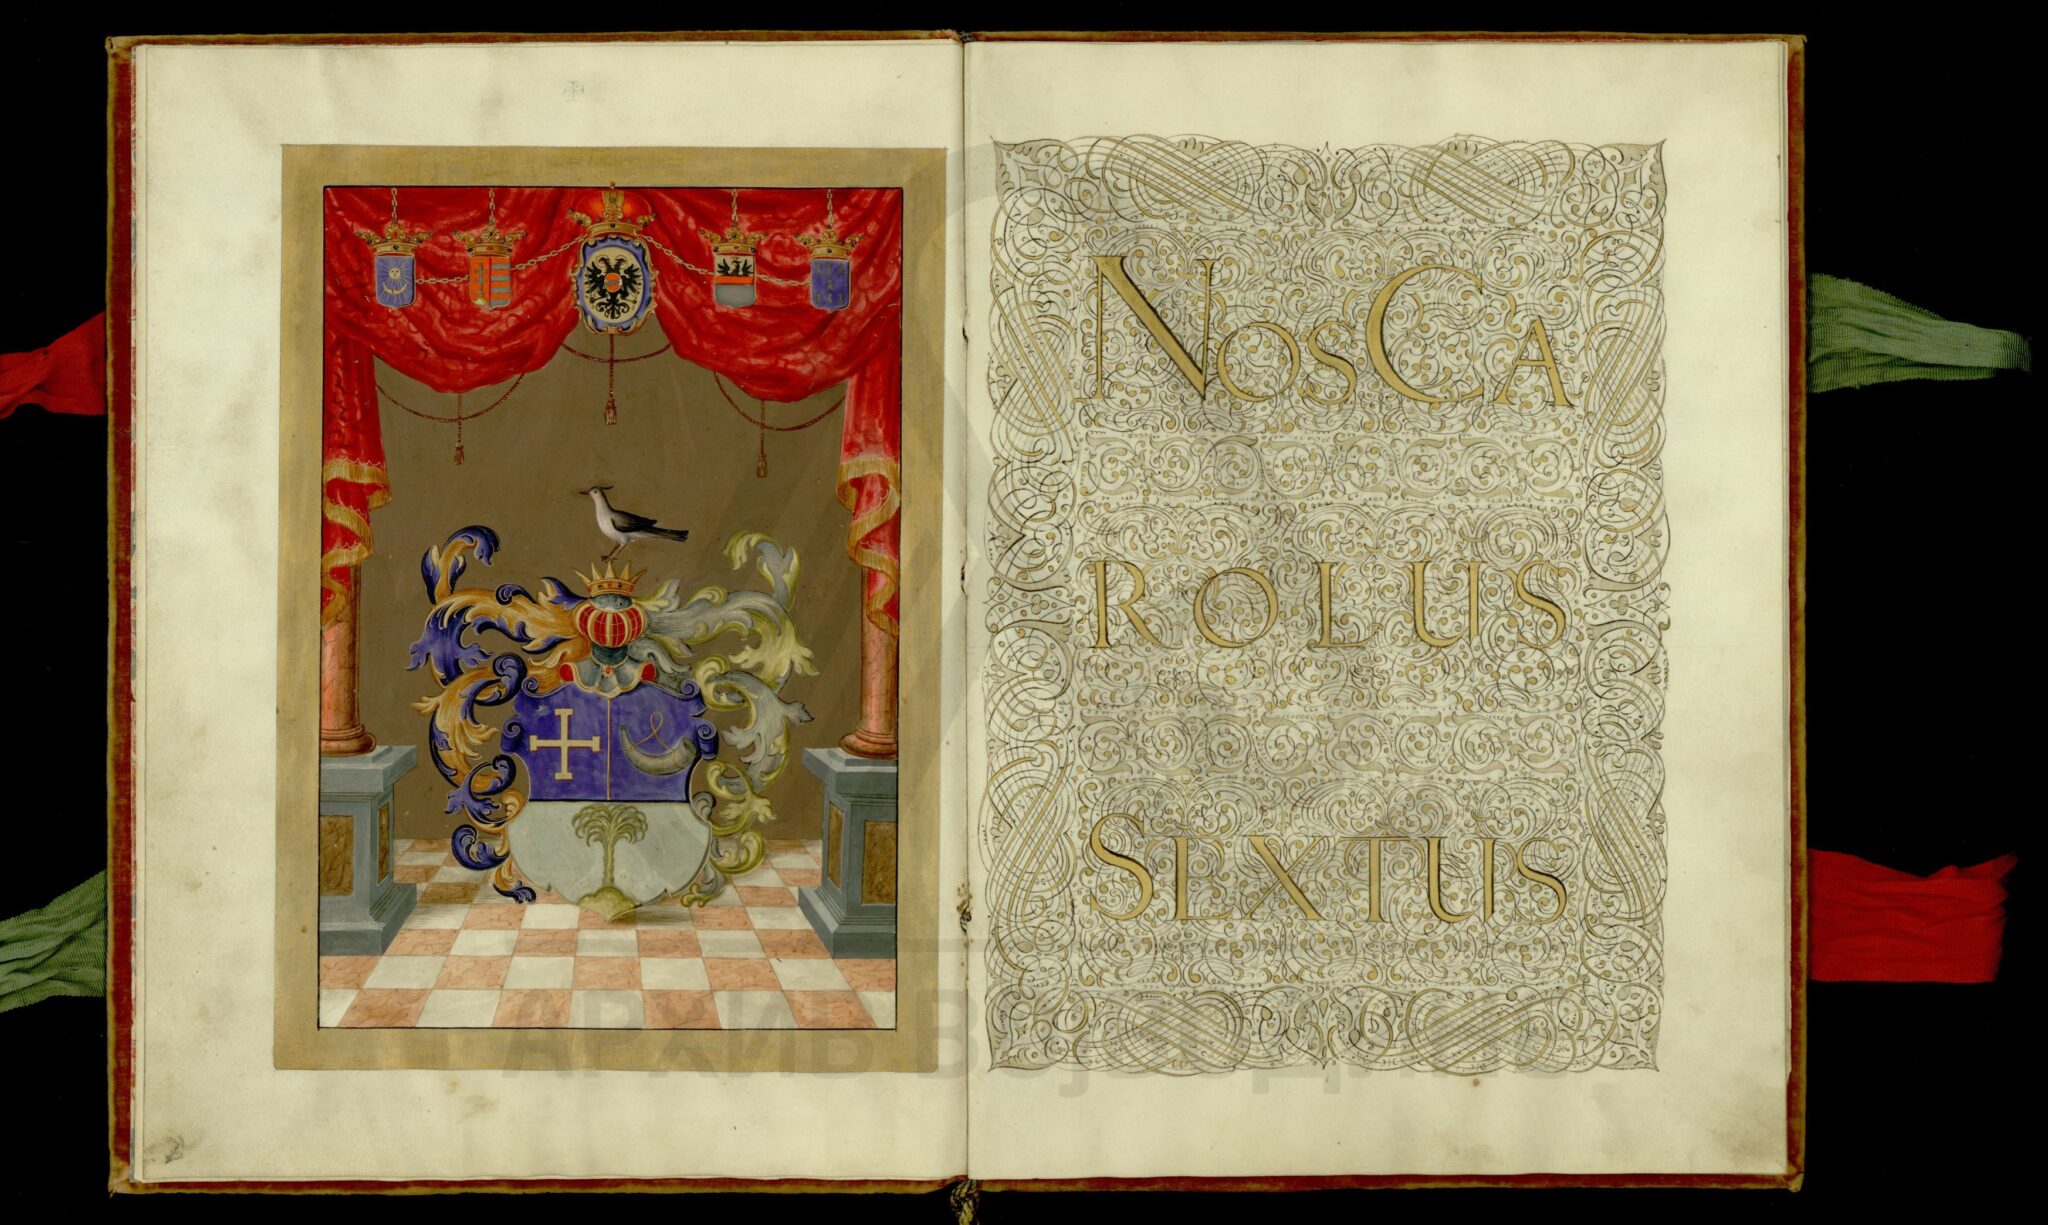 NOSCA
ROLUS
SEXTUS
АРХИВ ВОЈВОДИНЕ